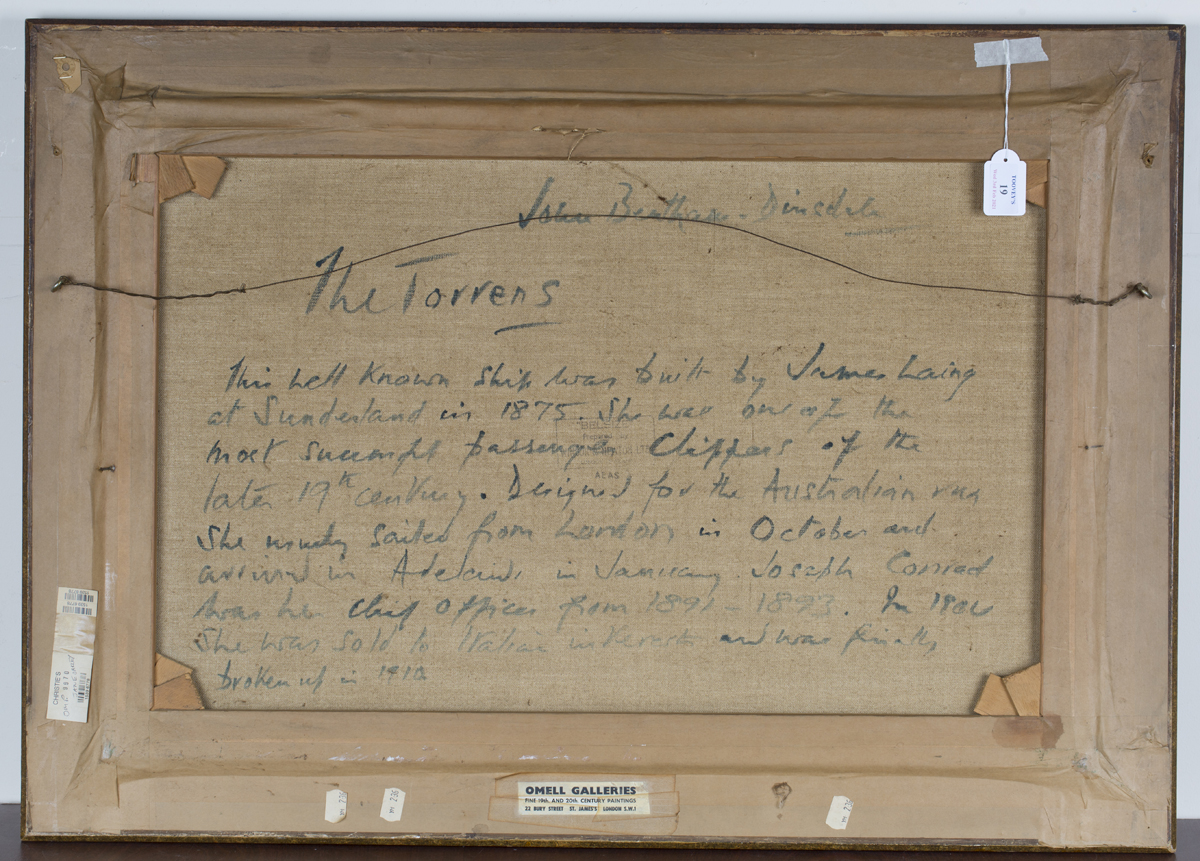 John Bentham-Dinsdale
The Torrens
This well known ship was built by James Laing
at Sunderland in 1875. She was one of the
most successful passenger Clippers of the
later 19th century. Designed for the Australian run
She usually sailed from London in October and
arrived in Adelaide in January. Joseph Conrad
was her chief officer from 1891 - 1893. In
She was sold to Italian interests and was finally
broken up in 1910
TOOVEY'S
19
CHRISTIE'S
OMELL GALLERIES
FINE 19th. AND 20th. CENTURY PAINTINGS
22 BURY STREET ST. JAMES'S LONDON S.W.1
m 236
m 236
m 236